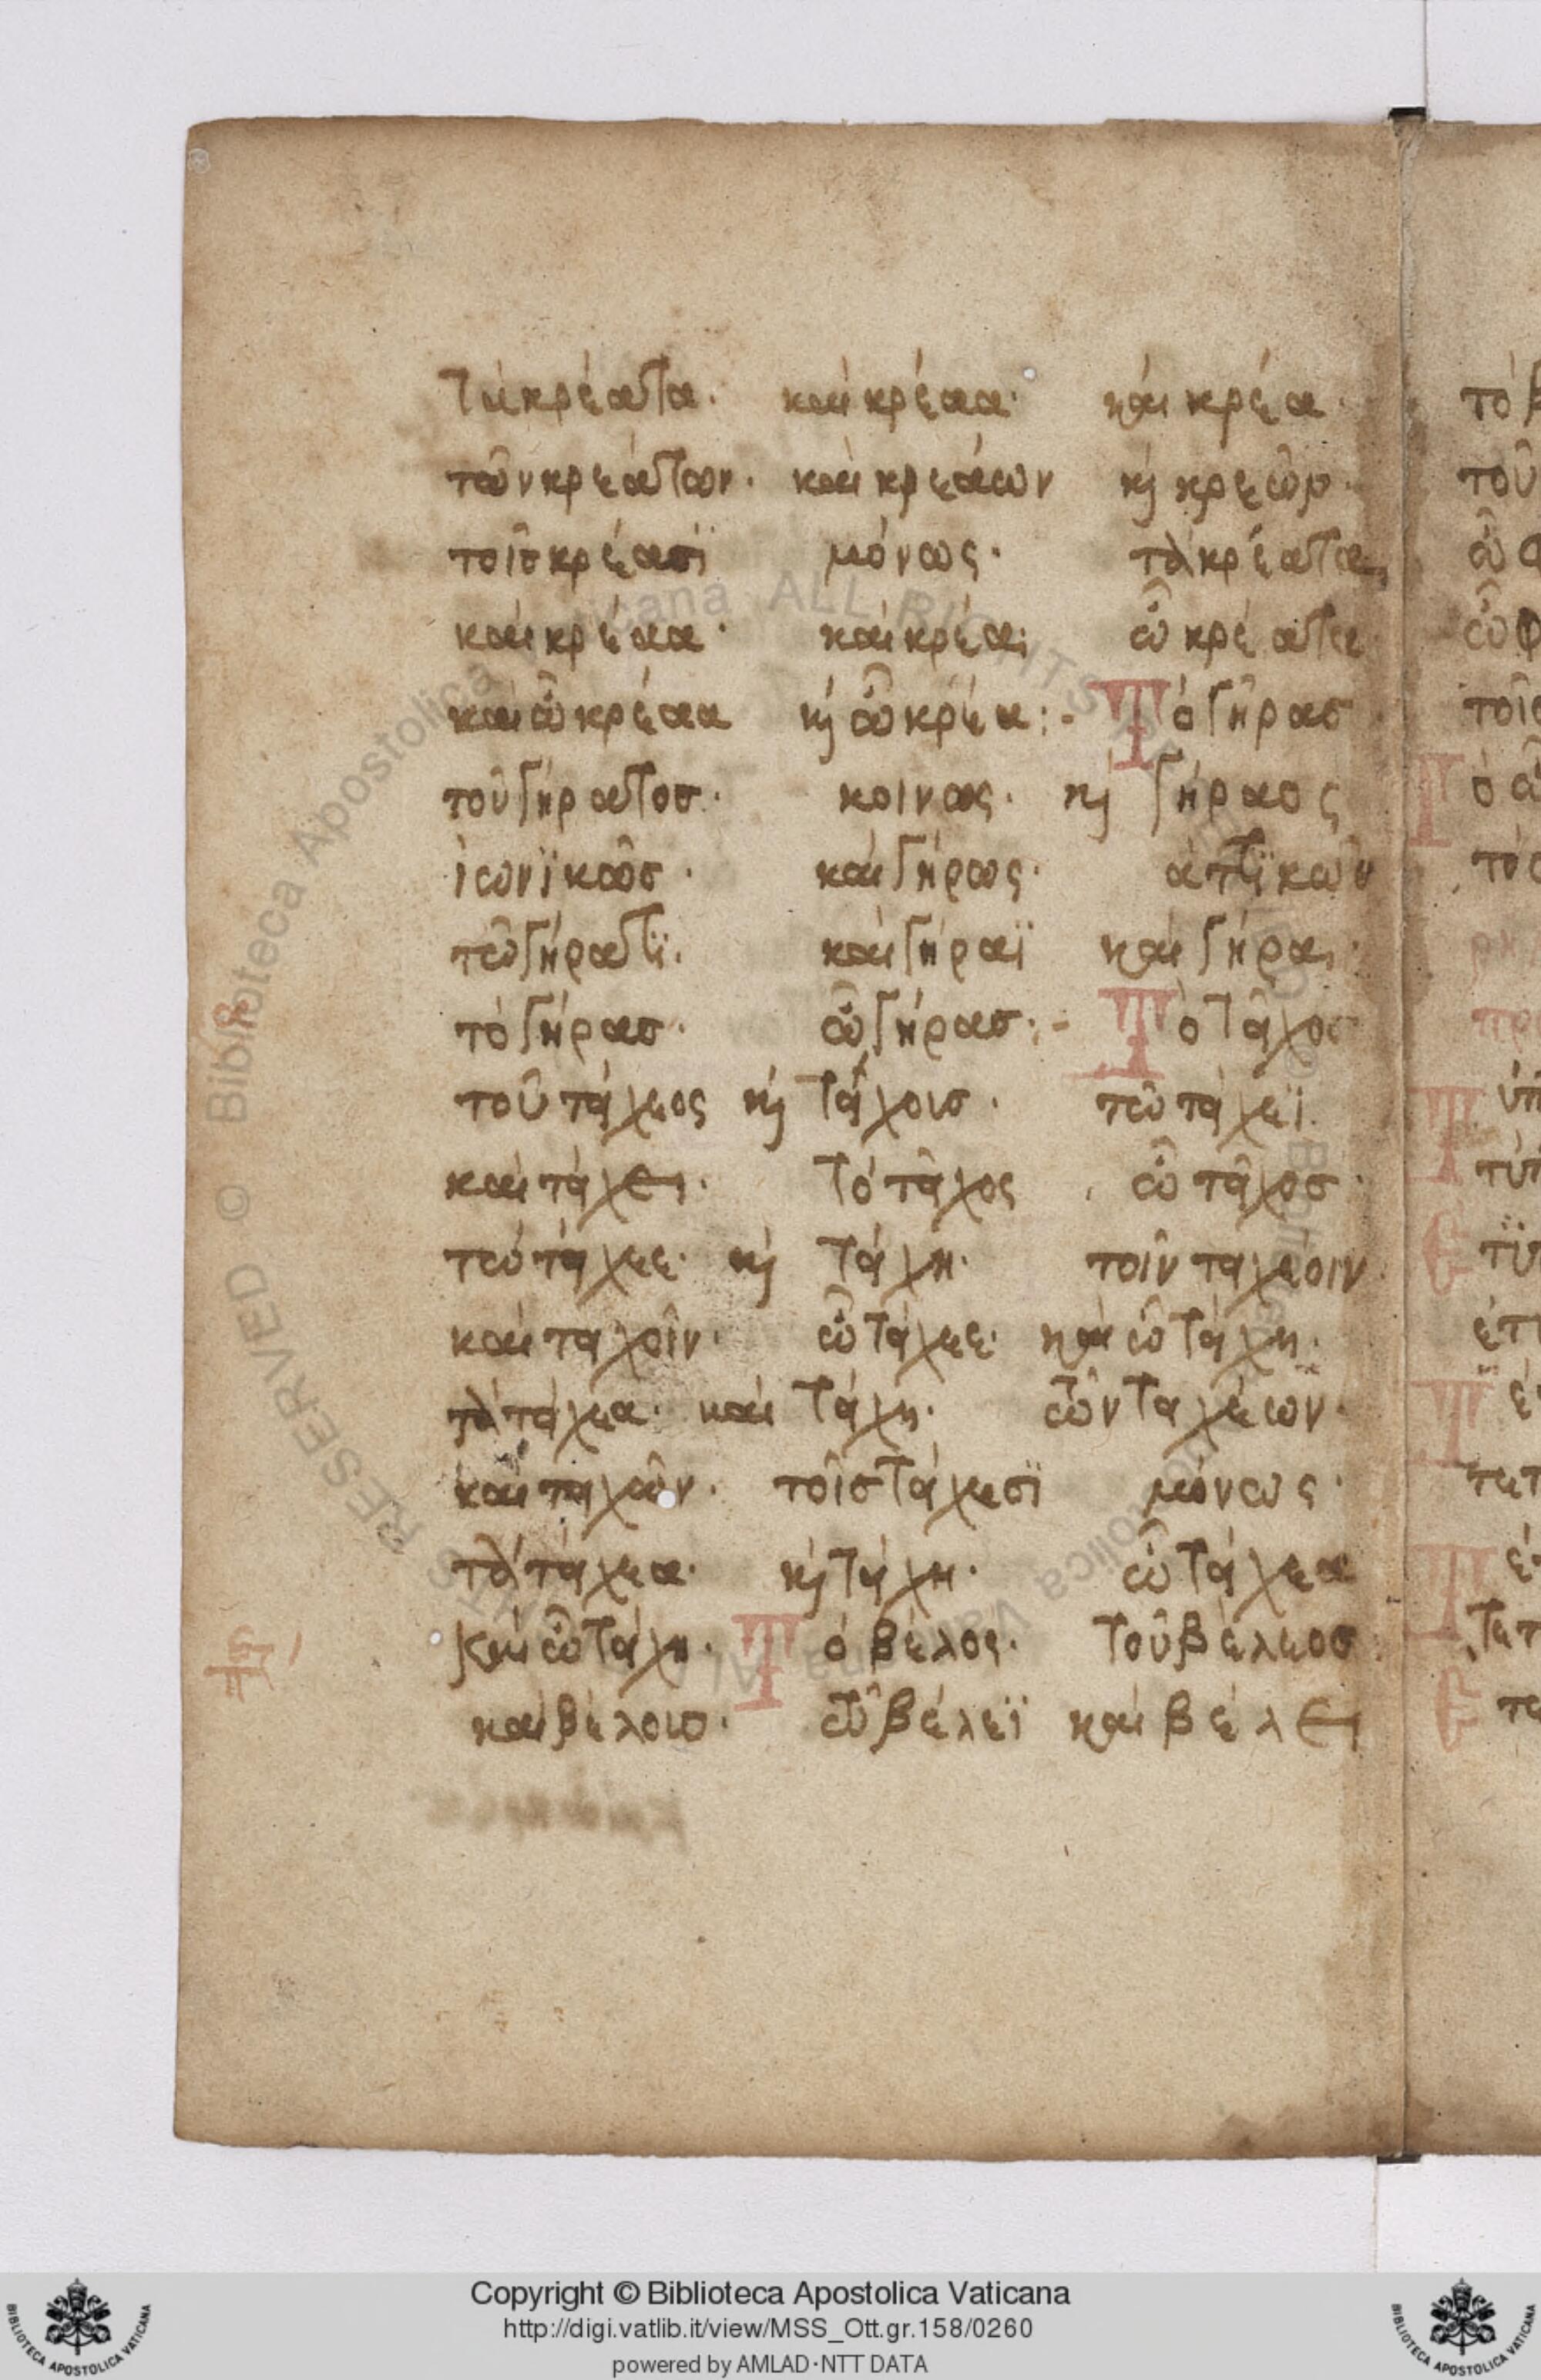 τὰ κρέατα· καὶ κρέαα· καὶ κρέα·
τῶν κρεάτων· καὶ κρεάων κὶ κρεῶν·
τοῖς κρέασϊ μόνως· τὰ κρέατα,
καὶ κρέαα· καὶ κρέα; ὦ κρέατα
καὶ ὦ κρέαα κὶ ὦ κρέα:- Τὸ γῆρασ
τοῦ γήρατοσ· κοινως· κὶ γήραος
ἰωνϊκῶσ· καὶ γήρως· ἀττϊκῶν
τῶ γήρατϊ. καὶ γήραϊ καὶ γήραι·
τὸ γήρασ· ὦ γήρασ:- Τὸ τάχοσ
τοῦ τάχεος κὶ τάχουσ· τῶ τάχεϊ.
καὶ τάχει· τὸ τάχος ὦ τάχοσ·
τὼ τάχεε· κὶ τάχη· τοῖν ταχέοιν·
καὶ ταχοῖν· ὦ τάχεε· καὶ ὦ τάχη·
τὰ τάχεα· καὶ τάχη· τῶν ταχέων·
καὶ ταχῶν· τοῖσ τάχεσϊ μόνως·
τὰ τάχεα· κὶ τάχη· ὦ τάχεα
καὶ ὦ τάχη· Τὸ βέλος· τοῦ βέλεοσ·
καὶ βέλουσ· τῶ βέλεϊ καὶ βέλει
Copyright © Biblioteca Apostolica Vaticana
http://digi.vatlib.it/view/MSS_Ott.gr.158/0260
powered by AMLAD·NTT DATA
BIBLIOTECA APOSTOLICA VATICANA
BIBLIOTECA APOSTOLICA VATICANA